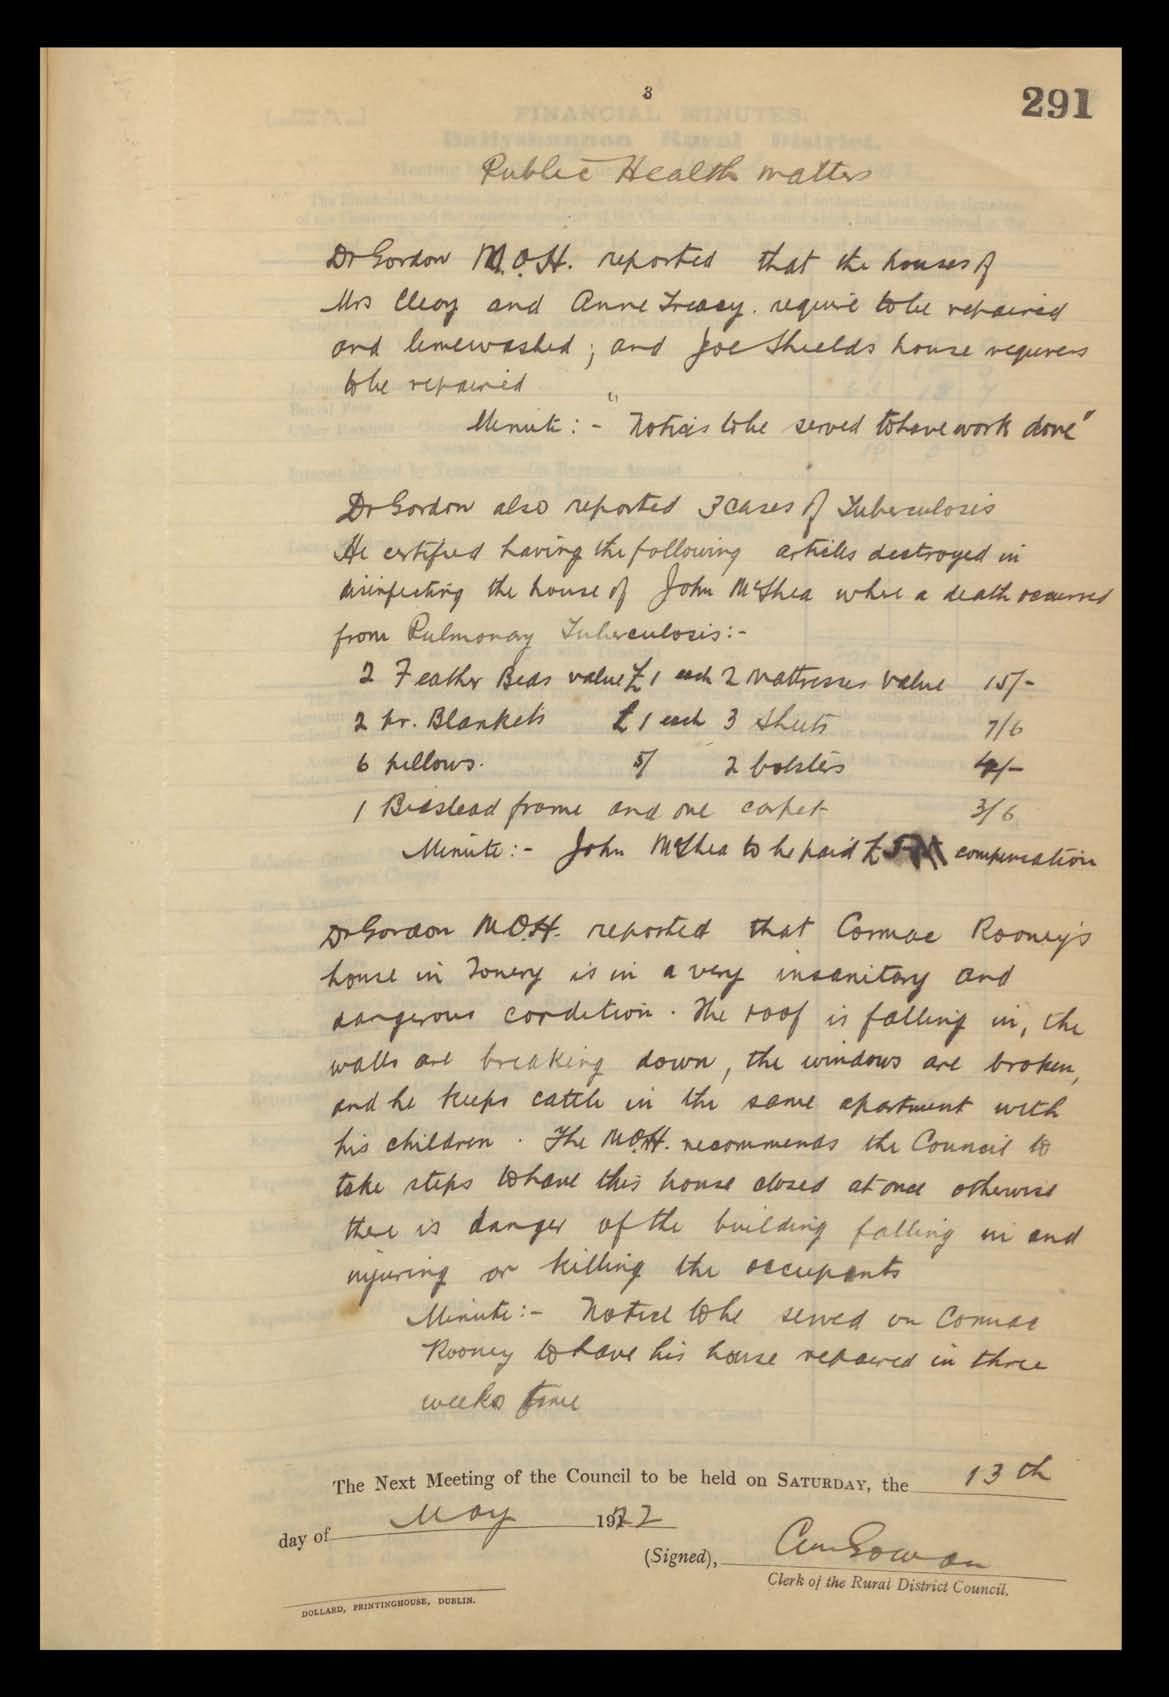 3
291
Public Health matters
Dr Gordon M.O.H. reported that the houses of
Mrs Cleary and Anne Treacy. require to be repaired
and limewashed ; and Joe Shields house requires
to be repaired
Minute : - "Notices to be served to have work done"
Dr Gordon also reported 3 cases of Tuberculosis
He certified having the following articles destroyed in
disinfecting the house of John McShea where a death occurred
from Pulmonary Tuberculosis:-
2 Feather Beds value £1 each 2 mattresses value 15/-
2 pr. Blankets £1 each 3 sheets 7/6
6 pillows. 5/ 2 bolsters 4/-
1 Bedstead frame and one carpet 3/6
Minute:- John McShea to be paid £5 compensation
Dr Gordon M.O.H. reported that Cormac Rooney's
house in Tonery is in a very insanitary and
dangerous condition. The roof is falling in, the
walls are breaking down, the windows are broken,
and he keeps cattle in the same apartment with
his children. The M.O.H. recommends the Council to
take steps to have this house closed at once otherwise
there is danger of the building falling in and
injuring or killing the occupants
Minute:- Notice to be served on Cormac
Rooney to have his house repaired in three
weeks time
The Next Meeting of the Council to be held on SATURDAY, the 13th
day of May 1922
(Signed),
Clerk of the Rural District Council.
DOLLARD, PRINTINGHOUSE, DUBLIN.